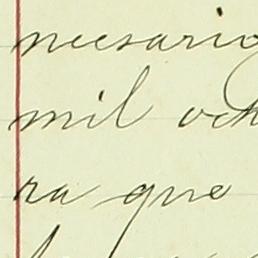 necesario
mil och
ra que